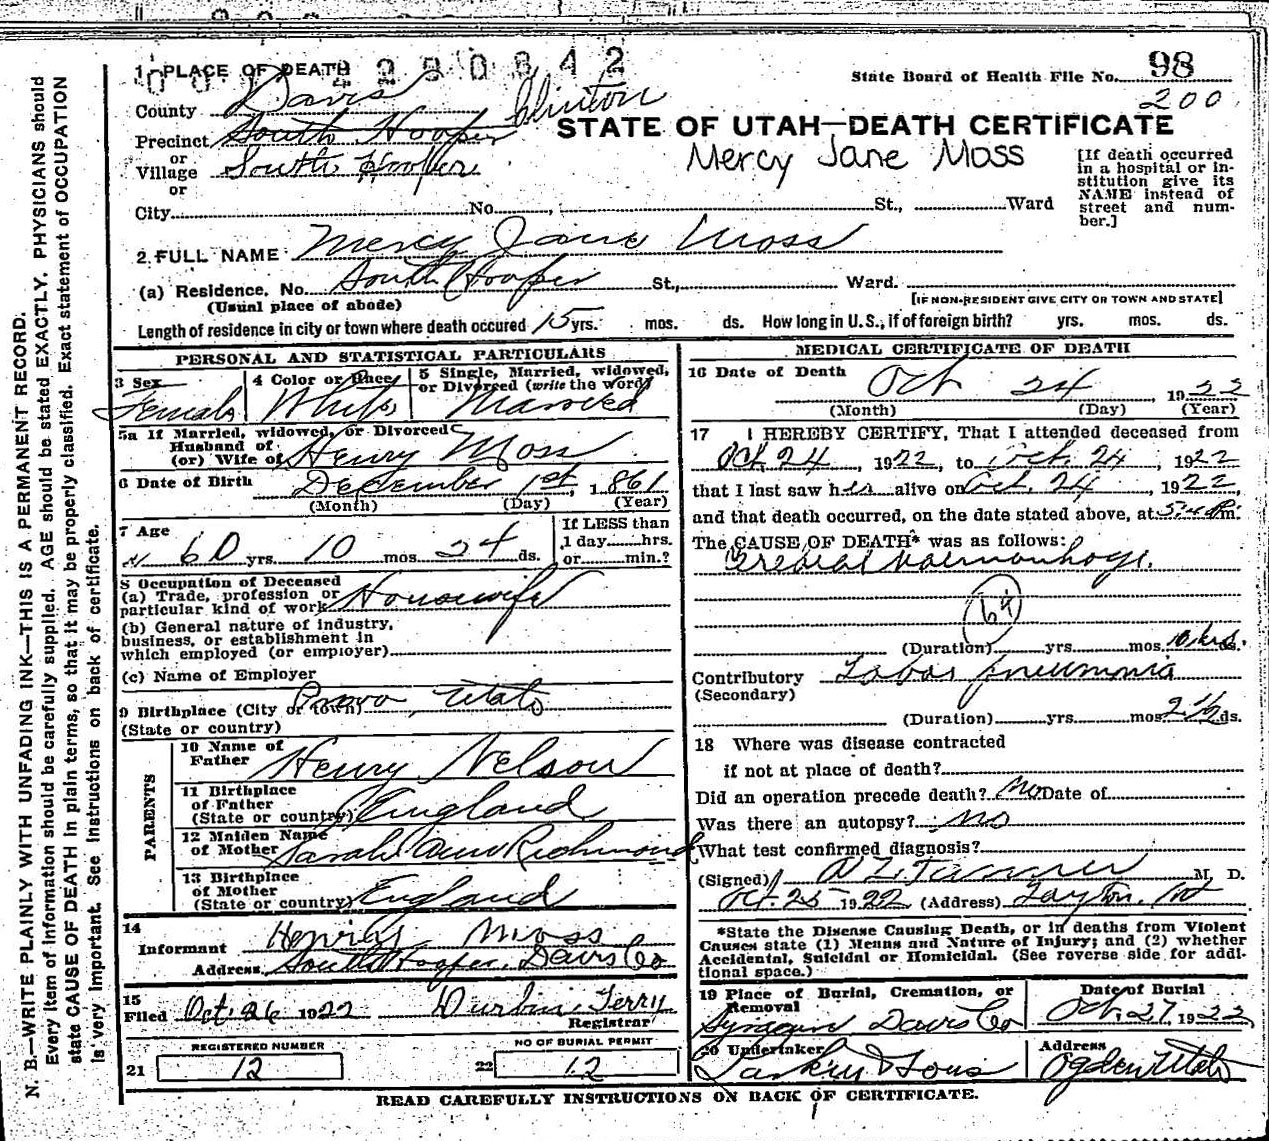 2 3 0 8 4 2
1 PLACE OF DEATH
State Board of Health File No. 98
200
County Davis
Clinton
Precinct South Hooper
STATE OF UTAH—DEATH CERTIFICATE
or
Village South Hooper
or
Mercy Jane Moss
[If death occurred in a hospital or in-
stitution give its
NAME instead of
street and num-
ber.]
City No. , St., Ward
2 FULL NAME Mercy Jane Moss
(a) Residence, No. South Hooper St., Ward.
(Usual place of abode) [IF NON-RESIDENT GIVE CITY OR TOWN AND STATE]
Length of residence in city or town where death occured 15 yrs. mos. ds. How long in U.S., if of foreign birth? yrs. mos. ds.
PERSONAL AND STATISTICAL PARTICULARS
3 Sex
Female
4 Color or Race
White
5 Single, Married, widowed,
or Divorced (write the word)
Married
5a If Married, widowed, or Divorced
Husband of
(or) Wife of Henry Moss
6 Date of Birth December 1st, 1861
(Month) (Day) (Year)
7 Age
60 yrs. 10 mos. 24 ds.
If LESS than
1 day hrs.
or min.?
8 Occupation of Deceased
(a) Trade, profession or
particular kind of work Housewife
(b) General nature of industry,
business, or establishment in
which employed (or employer)
(c) Name of Employer
9 Birthplace (City or town) Provo, Utah
(State or country)
PARENTS
10 Name of
Father Henry Nelson
11 Birthplace
of Father
(State or country) England
12 Maiden Name
of Mother Sarah Ann Richmond
13 Birthplace
of Mother
(State or country) England
14
Informant Henry Moss
Address South Hooper, Davis Co
15
Filed Oct. 26 1922 Durbin Terry
Registrar
REGISTERED NUMBER
21 12
NO OF BURIAL PERMIT
22 12
MEDICAL CERTIFICATE OF DEATH
16 Date of Death Oct 24, 1922
(Month) (Day) (Year)
17 I HEREBY CERTIFY, That I attended deceased from
Oct 24, 1922, to Oct. 24, 1922
that I last saw her alive on Oct. 24, 1922,
and that death occurred, on the date stated above, at m.
The CAUSE OF DEATH* was as follows:
Cerebral haemorrhage.
64
(Duration) yrs. mos. 10 hrs ds.
Contributory Lobar pneumonia
(Secondary)
(Duration) yrs. mos. 2 1/2 ds.
18 Where was disease contracted
if not at place of death?
Did an operation precede death? No Date of
Was there an autopsy? No
What test confirmed diagnosis?
(Signed) A Z Tanner M. D.
Oct. 25 1922 (Address) Layton, Ut
*State the Disease Causing Death, or in deaths from Violent
Causes state (1) Means and Nature of Injury; and (2) whether
Accidental, Suicidal or Homicidal. (See reverse side for addi-
tional space.)
19 Place of Burial, Cremation, or
Removal
Syracuse Davis Co
Date of Burial
Oct. 27, 1922
20 Undertaker
Larkin & Sons
Address
Ogden Utah
READ CAREFULLY INSTRUCTIONS ON BACK OF CERTIFICATE.
N. B.—WRITE PLAINLY WITH UNFADING INK—THIS IS A PERMANENT RECORD.
Every item of information should be carefully supplied. AGE should be stated EXACTLY. PHYSICIANS should
state CAUSE OF DEATH in plain terms, so that it may be properly classified. Exact statement of OCCUPATION
is very important. See instructions on back of certificate.